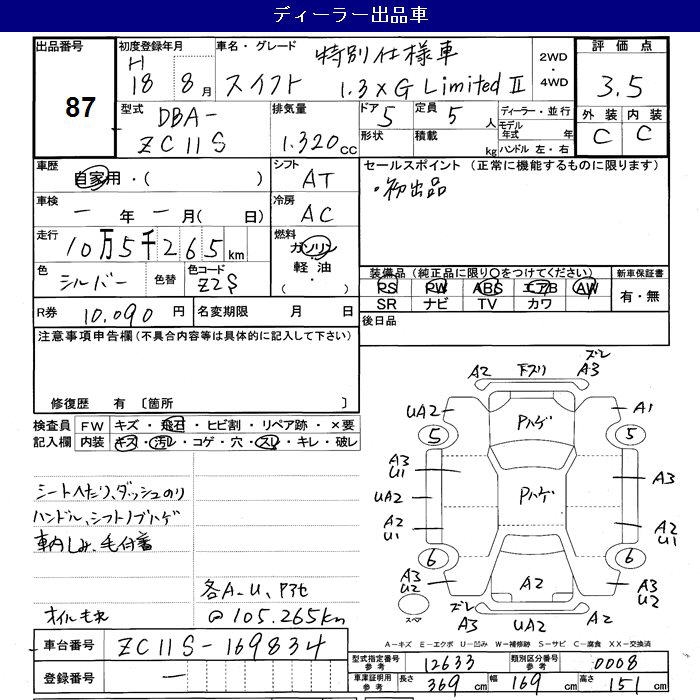 ディーラー出品車
出品番号
87
初度登録年月
H
18 8月
車名・グレード
特別仕様車
スイフト 1.3×G Limited Ⅱ
2WD
・
4WD
評価点
3.5
外装 内装
C C
型式
DBA-
ZC11S
排気量
1.320cc
ドア 5
定員 5人
形状
積載 kg
ディーラー・並行
モデル年式 年
ハンドル 左・右
車歴
自家用・( )
シフト
AT
セールスポイント (正常に機能するものに限ります)
・初出品
車検
- 年 - 月( 日)
冷房
AC
走行
10万5千265km
燃料
ガソリン
軽油
・
( )
色
シルバー
色替
色コード
Z2S
装備品(純正品に限り○をつけてください)
RS PW ABS エアB AW
SR ナビ TV カワ
新車保証書
有・無
R券 10.090円
名変期限 月 日
後日品
注意事項申告欄(不具合内容等は具体的に記入して下さい)
修復歴 有 〔箇所
検査員記入欄
FW キズ・飛石・ヒビ割・リペア跡・×要
内装 キズ・汚レ・コゲ・穴・スレ・キレ・破レ
シートへたり、ダッシュのり
ハンドル、シフトノブハゲ
車内しみ、毛付着
オイルもれ
各A-U、アアセ
@105.265km
A2 下スリ ズレ A3
UA2 Pハゲ A1
5 5
A3 U1 A3
UA2 Pハゲ
A2 U1 A2 U1
6 6
A3 U2 A2 A3 U2
スペア
ズレ A3 UA2 A2
A-キズ E-エクボ U-凹み W-補修跡 S-サビ C-腐食 XX-交換済
車台番号 ZC11S-169834
登録番号 -
型式指定番号 参考 12633
類別区分番号 参考 0008
車庫証明用 参考 長さ 369cm 幅 169cm 高さ 151cm